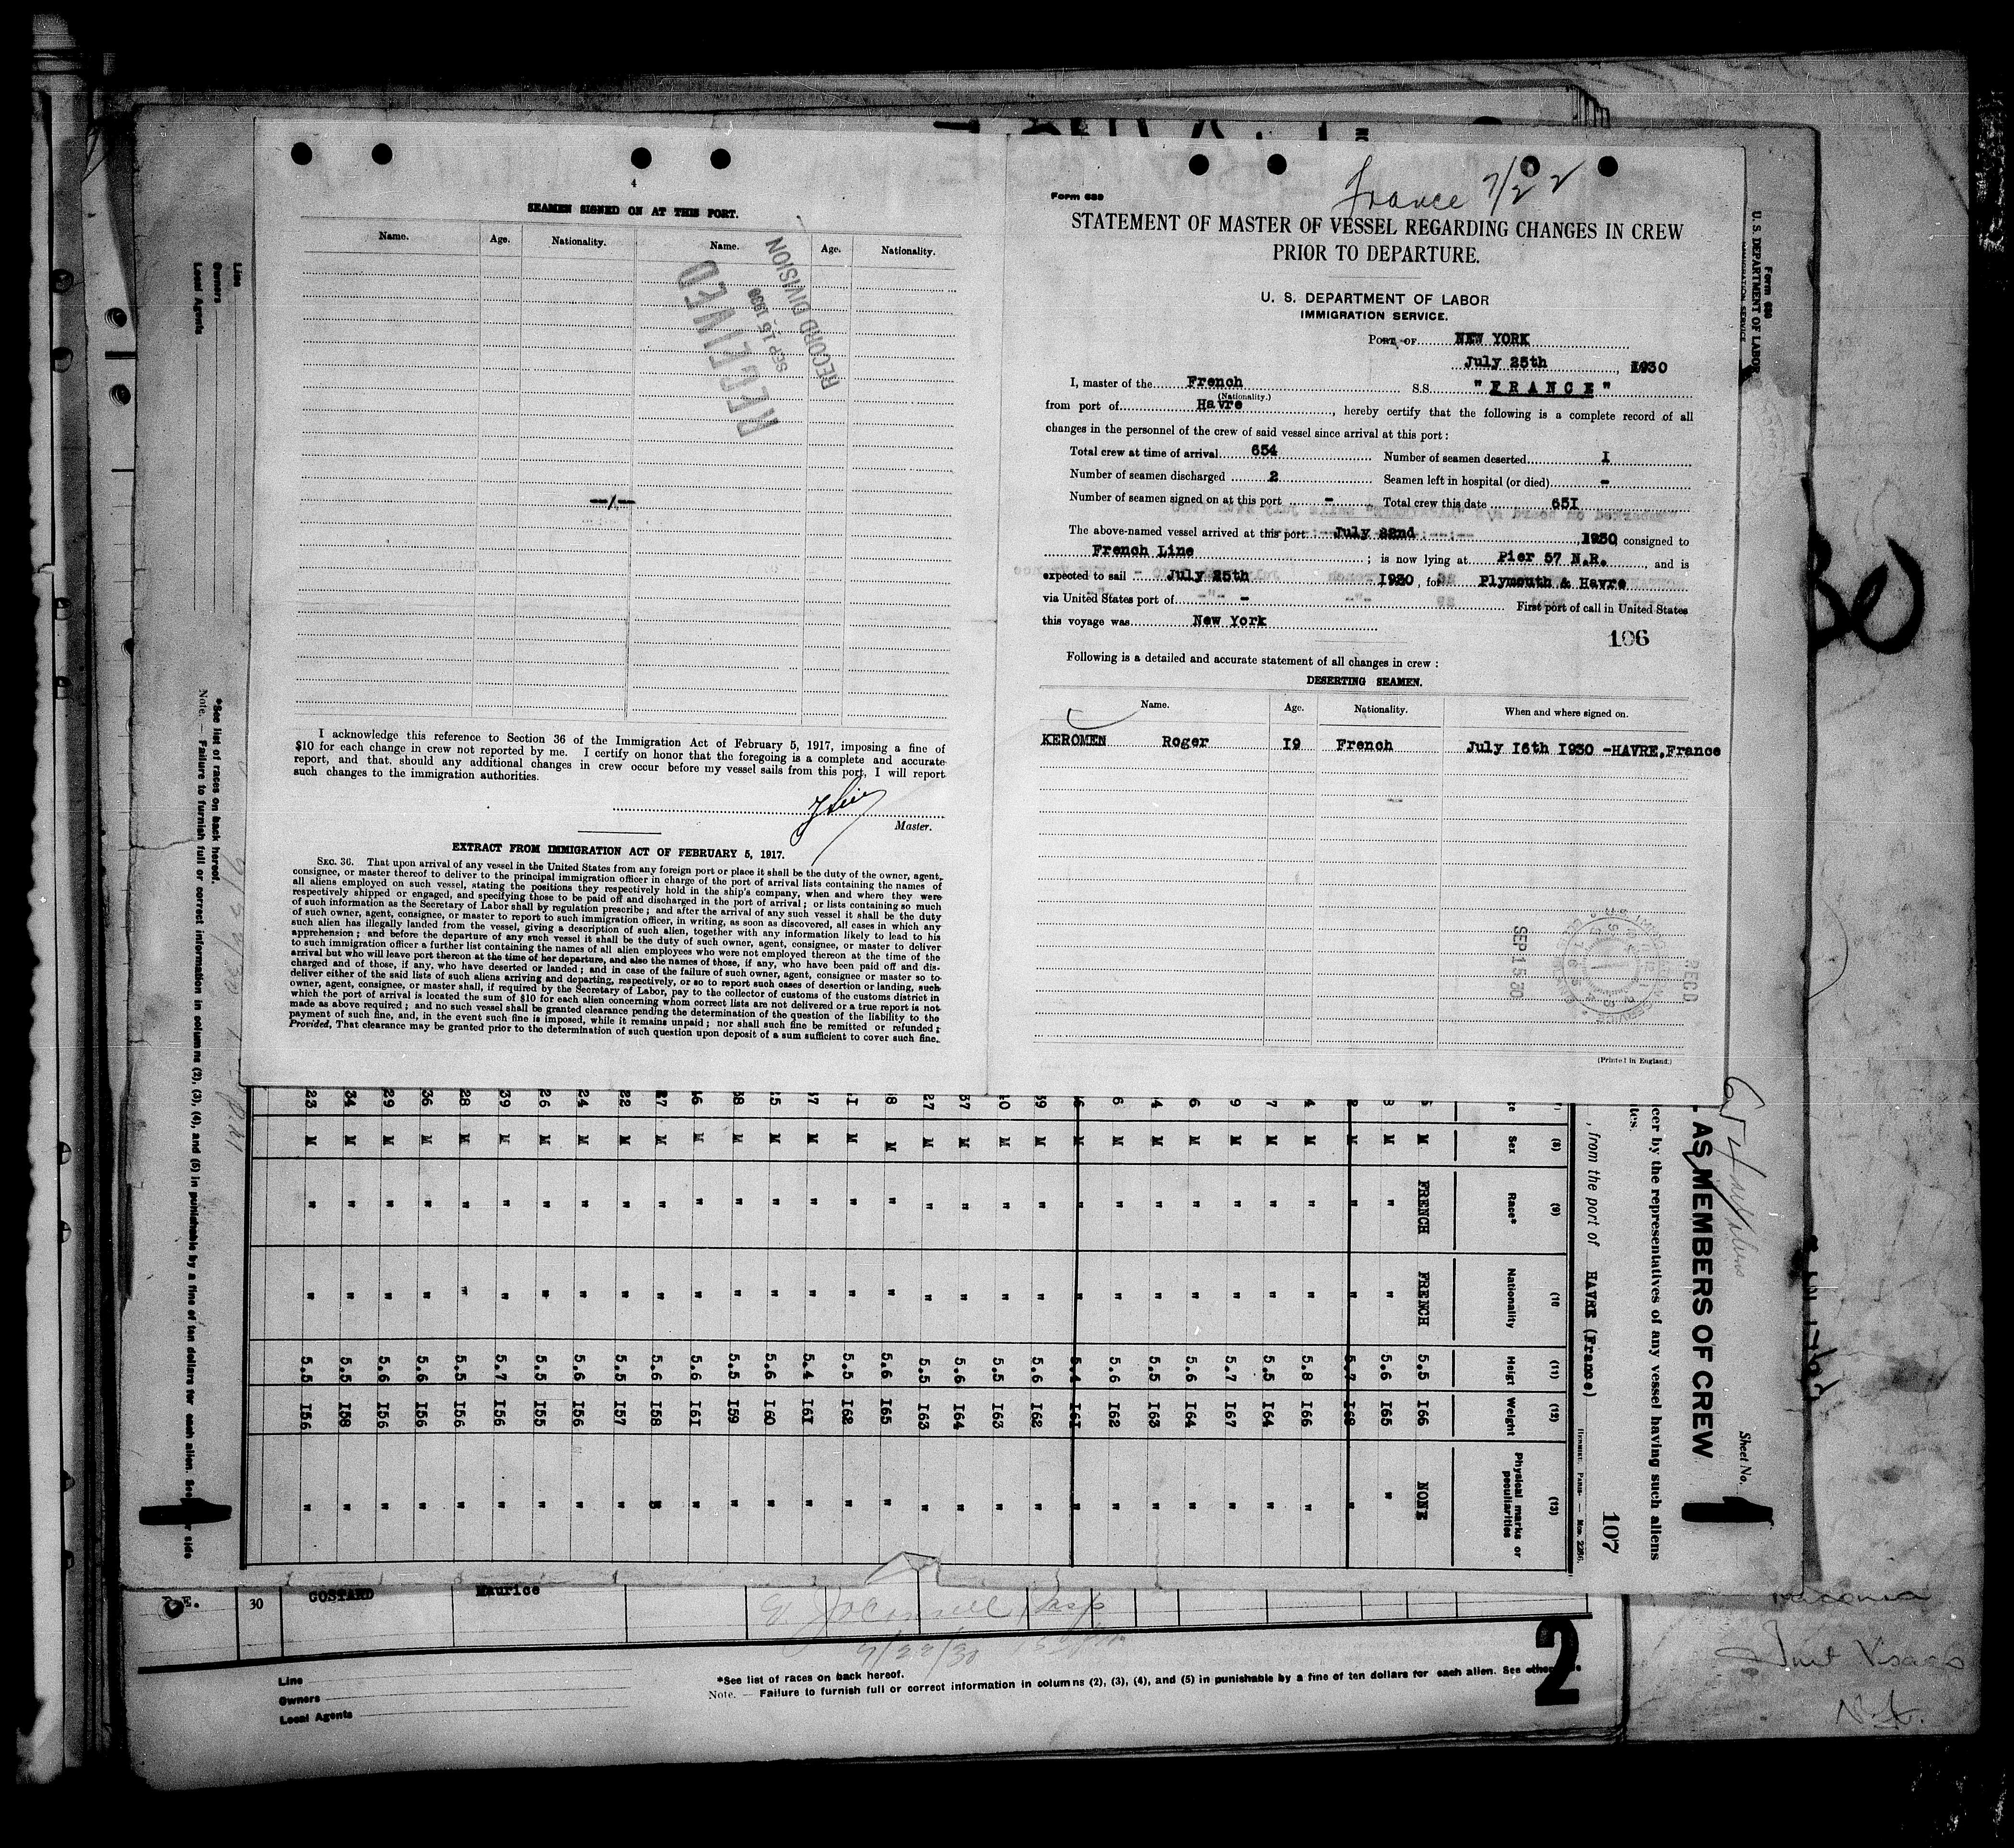 4
SEAMEN SIGNED ON AT THIS PORT.
Name. Age. Nationality. Name. Age. Nationality.
RECEIVED
SEP 15 1930
RECORD DIVISION
—/.—
I acknowledge this reference to Section 36 of the Immigration Act of February 5, 1917, imposing a fine of
$10 for each change in crew not reported by me. I certify on honor that the foregoing is a complete and accurate
report, and that, should any additional changes in crew occur before my vessel sails from this port, I will report
such changes to the immigration authorities.
Master.
EXTRACT FROM IMMIGRATION ACT OF FEBRUARY 5, 1917.
SEC. 36. That upon arrival of any vessel in the United States from any foreign port or place it shall be the duty of the owner, agent,
consignee, or master thereof to deliver to the principal immigration officer in charge of the port of arrival lists containing the names of
all aliens employed on such vessel, stating the positions they respectively hold in the ship's company, when and where they were
respectively shipped or engaged, and specifying those to be paid off and discharged in the port of arrival; or lists containing so much
of such information as the Secretary of Labor shall by regulation prescribe; and after the arrival of any such vessel it shall be the duty
of such owner, agent, consignee, or master to report to such immigration officer, in writing, as soon as discovered, all cases in which any
such alien has illegally landed from the vessel, giving a description of such alien, together with any information likely to lead to his
apprehension; and before the departure of any such vessel it shall be the duty of such owner, agent, consignee, or master to deliver
to such immigration officer a further list containing the names of all alien employees who were not employed thereon at the time of the
arrival but who will leave port thereon at the time of her departure, and also the names of those, if any, who have been paid off and dis-
charged and of those, if any, who have deserted or landed; and in case of the failure of such owner, agent, consignee or master so to
deliver either of the said lists of such aliens arriving and departing, respectively, or so to report such cases of desertion or landing, such
owner, agent, consignee, or master, shall, if required by the Secretary of Labor, pay to the collector of customs of the customs district in
which the port of arrival is located the sum of $10 for each alien concerning whom correct lists are not delivered or a true report is not
made as above required; and no such vessel shall be granted clearance pending the determination of the question of the liability to the
payment of such fine, and, in the event such fine is imposed, while it remains unpaid; nor shall such fine be remitted or refunded;
Provided, That clearance may be granted prior to the determination of such question upon deposit of a sum sufficient to cover such fine.
France 7/22
Form 689
STATEMENT OF MASTER OF VESSEL REGARDING CHANGES IN CREW
PRIOR TO DEPARTURE.
U. S. DEPARTMENT OF LABOR
IMMIGRATION SERVICE.
PORT OF NEW YORK
July 25th, 1930
I, master of the French S.S. "FRANCE"
(Nationality.)
from port of Havre, hereby certify that the following is a complete record of all
changes in the personnel of the crew of said vessel since arrival at this port:
Total crew at time of arrival 654 Number of seamen deserted I
Number of seamen discharged 2 Seamen left in hospital (or died) -
Number of seamen signed on at this port - Total crew this date 65I
The above-named vessel arrived at this port July 22nd 1930 consigned to
French Line; is now lying at Pier 57 N.R., and is
expected to sail July 25th 1930, for Plymouth & Havre
via United States port of - First port of call in United States
this voyage was New York
106
Following is a detailed and accurate statement of all changes in crew:
DESERTING SEAMEN.
Name. Age. Nationality. When and where signed on.
KEROMEN Roger I9 French July I6th I930 -HAVRE,France
SEP 15 30
RECD
(Printed in England.)
Form 680
U. S. DEPARTMENT OF LABOR
IMMIGRATION SERVICE
Sheet No.
AS MEMBERS OF CREW
cer by the representatives of any vessel having such aliens
, from the port of HAVRE (France)
107
(8) (9) (10 (11) (12) (13)
Sex Race* Nationality Heigt Weight Physical marks or peculiarities
M FRENCH FRENCH 5.5 I66 NONE
M " " 5.6 I65 "
M " " 5.7 I68 "
4 M " " 5.8 I66 "
7 M " " 5.5 I64 "
9 M " " 5.7 I67 "
6 M " " 5.6 I64 "
4 M " " 5.5 I63 "
6 M " " 5.6 I62 "
M " " 5.4 I61 "
39 M " " 5.6 I62 "
M " " 5.5 I63 "
37 M " " 5.6 I64 "
27 M " " 5.5 I63 "
M " " 5.6 I65 "
M " " 5.5 I62 "
M " " 5.4 I6I "
M " " 5.6 I60 "
M " " 5.5 I59 "
M " " 5.6 I6I "
27 M " " 5.6 I58 "
22 M " " 5.5 I57 "
24 M " " 5.6 I56 "
26 M " " 5.5 I55 "
39 M " " 5.7 I56 "
28 M " " 5.5 I56 "
36 M " " 5.6 I56 "
29 M " " 5.6 I56 "
34 M " " 5.5 I58 "
23 M " " 5.5 I56 "
Line
Owners
Local Agents
*See list of races on back hereof.
Note. — Failure to furnish full or correct information in columns (2), (3), (4), and (5) in punishable by a fine of ten dollars for each alien. See
side
30 GOSTARD Maurice
7/22/30
Line
Owners
Local Agents
*See list of races on back hereof.
Note. — Failure to furnish full or correct information in columns (2), (3), (4), and (5) in punishable by a fine of ten dollars for each alien. See other
2